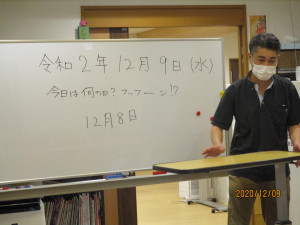 令和2年12月9日(水)
今日は何の日?フッフーン!?
12月8日
2020/12/09